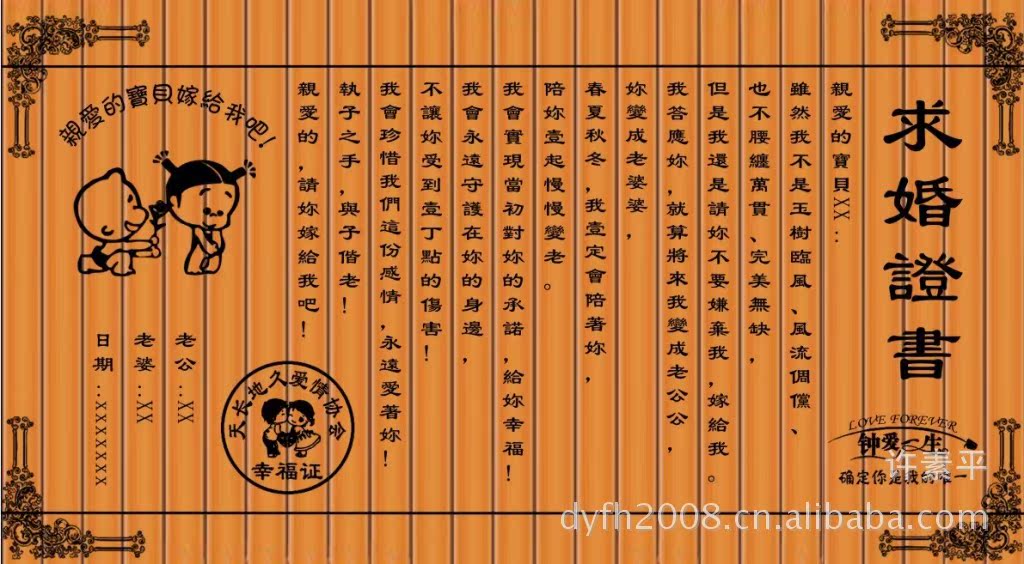 求婚證書
LOVE FOREVER
钟爱一生
确定你是我的唯一
親愛的寶貝XX：
雖然我不是玉樹臨風、風流倜儻、
也不腰纏萬貫、完美無缺，
但是我還是請妳不要嫌棄我，嫁給我。
我答應妳，就算將來我變成老公公，
妳變成老婆婆，
春夏秋冬，我壹定會陪著妳，
陪妳壹起慢慢變老。
我會實現當初對妳的承諾，給妳幸福！
我會永遠守護在妳的身邊，
不讓妳受到壹丁點的傷害！
我會珍惜我們這份感情，永遠愛著妳！
執子之手，與子偕老！
親愛的，請妳嫁給我吧！
天长地久爱情协会
幸福证
親愛的寶貝嫁給我吧！
老公：XX
老婆：XX
日期：XXXXXXX
许素平
dyfh2008.cn.alibaba.com